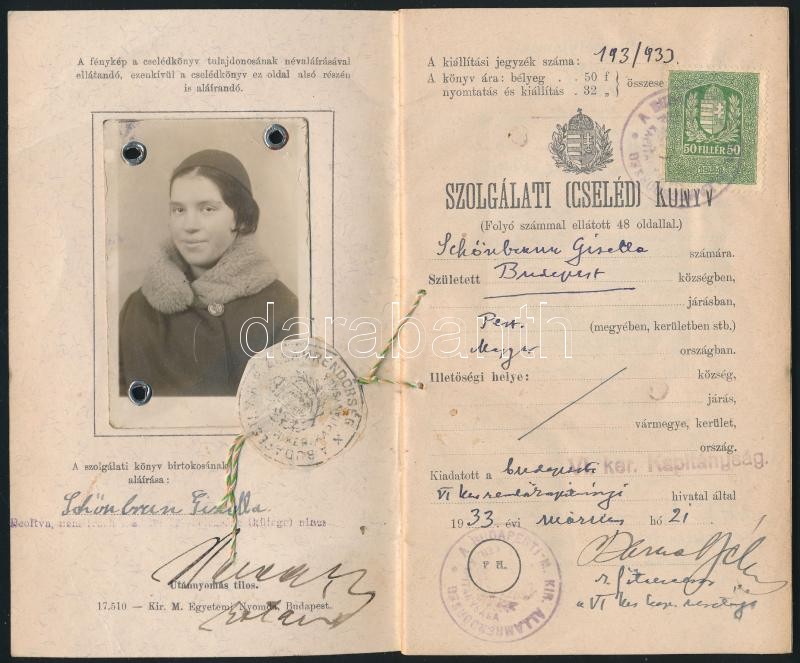 A fénykép a cselédkönyv tulajdonosának névaláírásával
ellátandó, ezenkívül a cselédkönyv ez oldal alsó részén
is aláírandó.
A szolgálati könyv birtokosának
aláírása:
Schönbrun Gizella
Utánnyomás tilos.
17.510 – Kir. M. Egyetemi Nyomda, Budapest.
A kiállítási jegyzék száma: 193/933.
A könyv ára: bélyeg . 50 f
nyomtatás és kiállítás . 32 „
össze
50 FILLÉR 50
SZOLGÁLATI (CSELÉD) KÖNYV
(Folyó számmal ellátott 48 oldallal.)
Schönbrun Gisella számára.
Született Budapest községben,
járásban,
Pest (megyében, kerületben stb.)
Magyar országban.
Illetőségi helye: község,
járás,
vármegye, kerület,
ország.
VI. ker. Kapitányság.
Kiadatott a budapesti
VI ker rendőrkapitánysági hivatal által
1933. évi március hó 21
P. H.
A BUDAPESTI M. KIR. ÁLLAMRENDŐRSÉG
darabanth